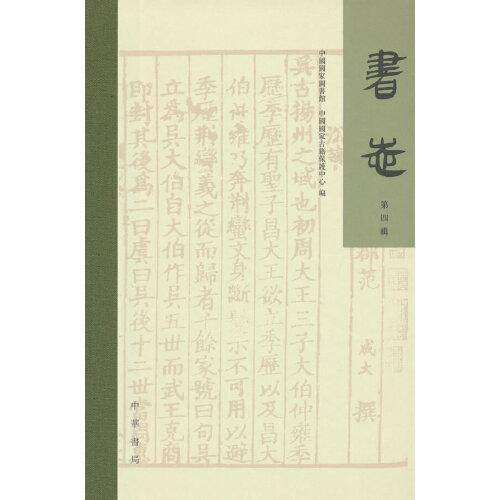 書志
第四輯
中國國家圖書館 中國國家古籍保護中心 編
郡范 成大 撰
吳古揚州之域也初周大王三子大伯仲雍季
歷季歷有聖子昌大王欲立季歷以及昌大
伯仲雍乃奔荊蠻文身斷 示不可用以避
季歷荊蠻義之從而歸者千餘家號曰句吳
立為吳大伯自大伯作吳五世而武王克商
即封其後為二曰虞曰吳後十二世
中華書局